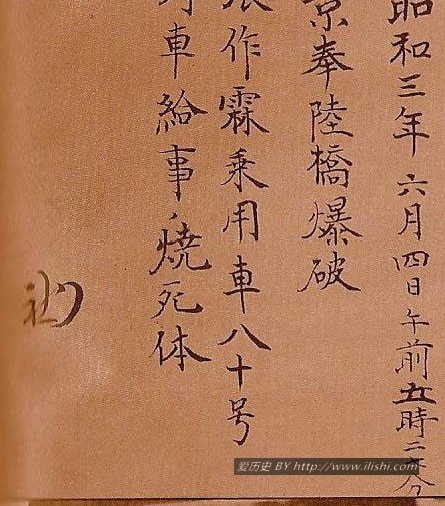 昭和三年六月四日午前五時二分
京奉陸橋爆破
作霖乗用車八十号
車給事ノ焼死体
爱历史 BY http://www.ilishi.com